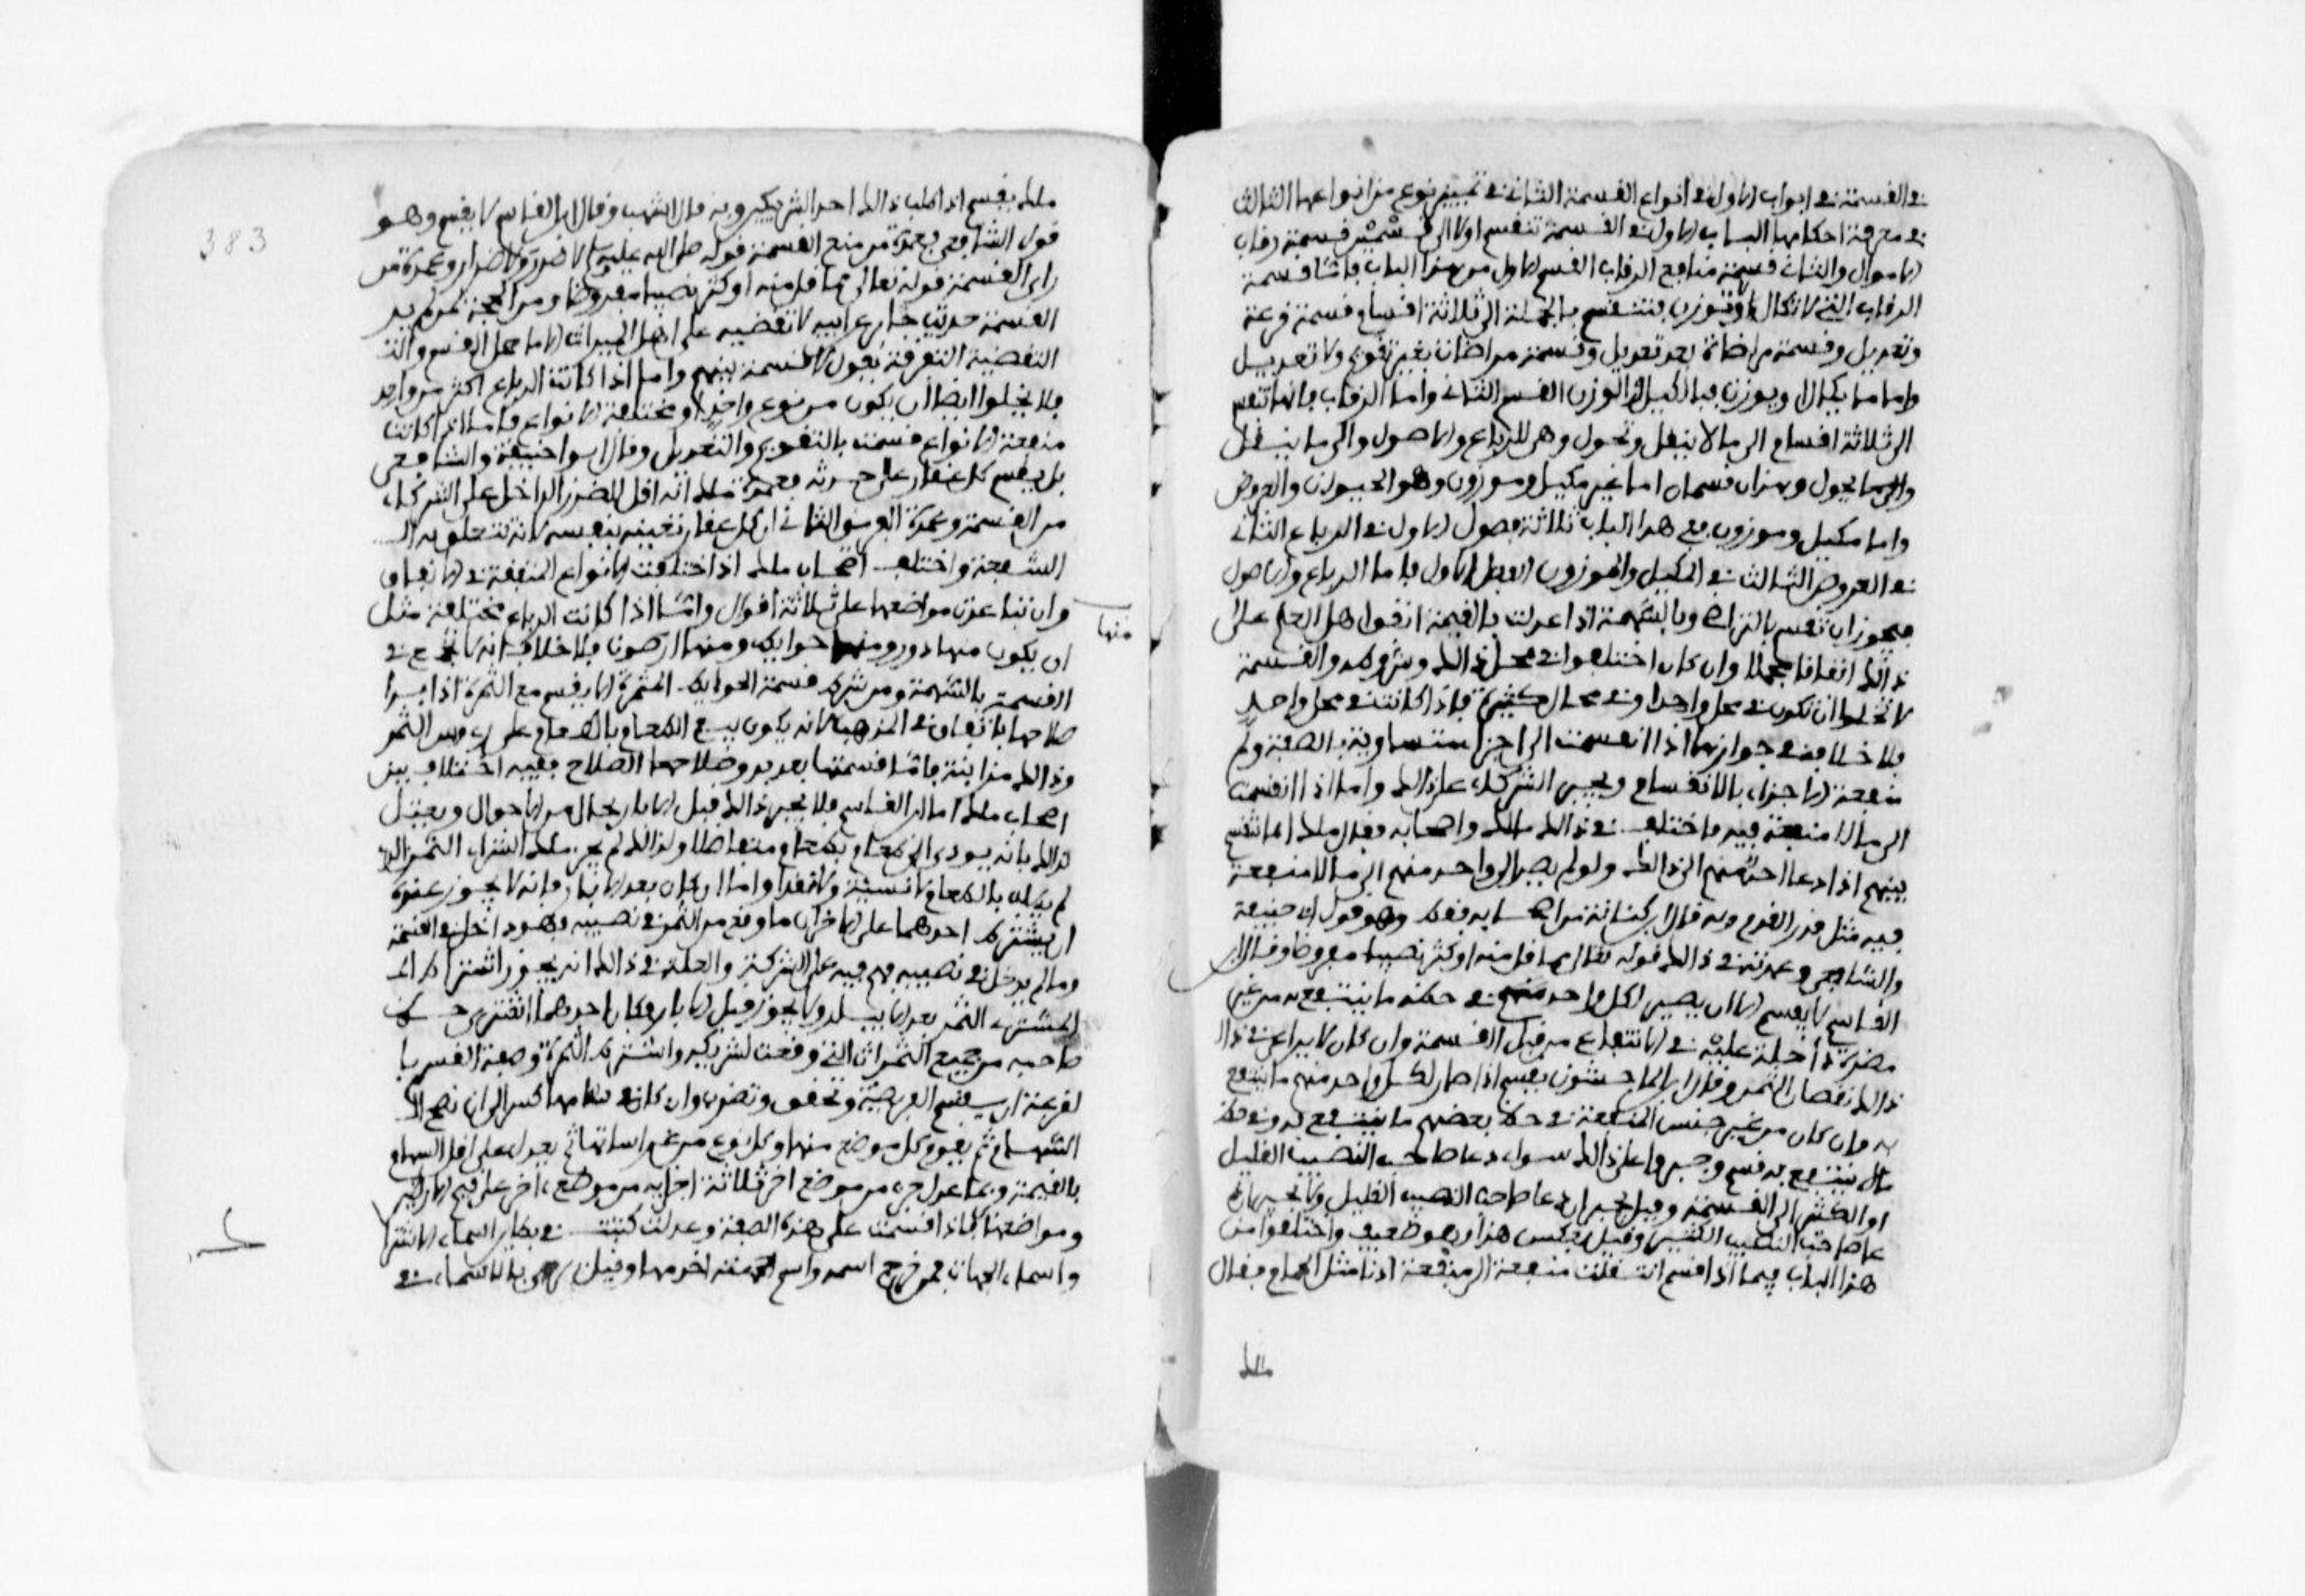 في القسمة في ابواب الاول في انواع القسمة الثاني في تعيين نوع من انواعها الثالث
في معرفة احكامها الباب الاول في القسمة تنقسم اولا الى قسمين قسمة رقاب
الاموال والثاني قسمة منافع الرقاب القسم الاول من هذا الباب فاما قسمة
الرقاب التي لا تكال ولا توزن فتنقسم بالجملة الى ثلاثة اقسام قسمة قرعة
وتعديل وقسمة مراضاة بعد تعديل وقسمة مراضات بغير تقويم ولا تعديل
واما ما يكال او يوزن فبالكيل والوزن القسم الثاني واما الرقاب فانها تنقسم
الى ثلاثة اقسام الى ما لا ينقل وتحول وهي الرباع والاصول والى ما ينقل
والى ما يحول وهذان قسمان اما غير مكيل وموزون وهو الحيوان والعروض
واما مكيل وموزون ففي هذا الباب ثلاثة فصول الاول في الرباع الثاني
في العروض الثالث في المكيل والموزون الفصل الاول فاما الرباع والاصول
فيجوز ان تقسم بالتراضي وبالسهمة اذا عدلت بالقيمة اتفق اهل العلم على
ذالك اتفاقا مجملا وان كان اختلفوا في محل ذالك وشروطه والقسمة
لا تخلوا ان تكون في محل واحد او في محال كثيرة فاذا كانت في محل واحد
فلا خلاف في جوازها اذا انقسمت الى اجزا متساوية بالصفة ولم
منفعة الاجزاء بالانقسام ويجبر الشركاء على ذالك واما اذا انقسمت
الى ما لا منفعة فيه فاختلف في ذالك مالك واصحابه فقال ملك انها تقسم
بينهم اذا دعا احدهم الى ذالك ولو لم يصر لواحد منهم الا ما لا منفعة
فيه مثل قدر القدم وبه قال ابن كنانة من اصحابه فقط وهو قول ابي حنيفة
والشافعي وعمدتهم في ذالك قوله تعالى مما قل منه او كثر نصيبا مفروضا وقال ابن
القاسم لا يقسم الا ان يصير لكل واحد منهم في حظه ما ينتفع به من غير
مضرة داخلة عليه في الانتفاع من قبل القسمة وان كان لا يراعى في ذالك
ذالك نقصان الثمن وقال ابن الماجشون يقسم اذا صار لكل واحد منهم ما ينتفع
به وان كان من غير جنس المنفعة في حظ بعضهم ما ينتفع به وفي حظ
ما لا ينتفع به قسم وجبروا على ذالك سواء دعا صاحب النصيب القليل
او الكثير الى القسمة وقيل يجبر ان دعا صاحب النصيب القليل ولا يجبر ان
دعا صاحب النصيب الكثير وقيل بعكس هذا وهو ضعيف واختلفوا من
هذا الباب فيما اذا قسم انتقلت منفعة الى منفعة اخرى مثل الحمام فقال
ملك
383
ملك يقسم اذا طلب ذالك احد الشريكين وبه قال اشهب وقال ابن القاسم لا يقسم وهو
قول الشافعي فعمدة من منع القسمة قوله صلى الله عليه لا ضرر ولا ضرار وعمدة من
راى القسمة قوله تعالى مما قل منه او كثر نصيبا مفروضا ومن الحجة لمن لم ير
القسمة حديث جابر عن ابيه لا تعضية على اهل الميراث الا ما حمل القسم والت
التعضية التفرقة يقول لا قسمة بينهم واما اذا كانت الرباع اكثر من واحد
فلا تخلوا ايضا ان يكون من نوع واحد او مختلفة الانواع فاما اذا كانت
منفعة الانواع قسمت بالتقويم والتعديل وقال ابوا حنيفة والشافعي
بل يقسم كل عقار على حدته فعمدة ملك انه اقل للضرر الداخل على الشركاء
من القسمة وعمدة الفريق الثاني ان كل عقار تعينه بنفسه لانه تتعلق به الـ
الشفعة واختلف اصحاب ملك اذا اختلفت الانواع المتفقة في الانفاق
وان تباعدت مواضعها على ثلاثة اقوال واما اذا كانت الرباع مختلفة مثل
منها
ان يكون منها دور ومنها حوايط ومنها ارضون فلا خلاف انه لا يجمع في
القسمة بالسهمة ومن شرط قسمة الحوايط المثمرة الا يقسم مع الثمرة اذا بدا
صلاحها باتفاق في المذهب لانه يكون بيع الطعام بالطعام على رءوس الثمر
وذالك مزابنة فاما قسمتها بعد بدو صلاحها الصلاح ففيه اختلاف بين
اصحاب ملك اما ابن القاسم فلا يجيز ذالك قبل الابار بحال من الاحوال ويعتل
لذالك بانه يودي الى طعام بطعام متفاضلا ولذالك لم يجز ملك اشتراء الثمر الذي
لم يطب بالطعام لا نسيئة ولا نقدا واما ان كان بعد الابار فانه لا يجوز عنده
ان يشترط احدهما على الاخر ان ما وقع من الثمر في نصيبه وهو داخل في القسمة
وما لم يدخل في نصيبه فهم فيه على الشركة والعلة في ذالك انه يجوز اشتراط الـ
المشتري الثمر بعد الابار ولا يجوز قبل الابار وكان احدهما اشترى حظ
صاحبه من جميع الثمرات التي وقعت لشريكه واشترط الثمرة وصفة القسم با
لقرعة ان يقسم الفريضة وتحقق وتضرب وان كان في سهامها كسر الى ان تصح الـ
السهام ثم يقوم كل موضع منها وكل نوع من غراساتها ثم يعدل على اقل السهام
بالقيمة فربما عدل جزء من موضع اخر ثلاثة اجزاء من موضع اخر على قيم الارضين
ومواضعها فاذا قسمت على هذه الصفة وعدلت كتبت في بطايق اسماء الاشتراك
واسماء الجهات فمن خرج اسمه واسم الجهة اخذ منها وقيل يرمى بالاسماء في